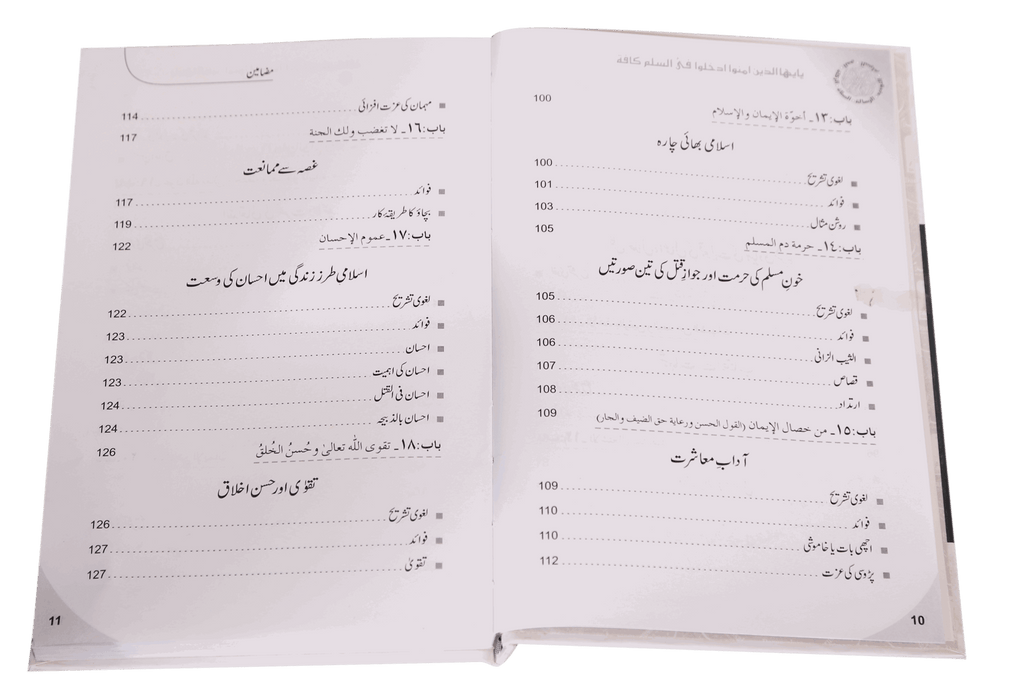 يايها الذين امنوا ادخلوا في السلم كافة
باب:١٣۔ أخوّة الإيمان والإسلام 100
اسلامی بھائی چارہ
لغوی تشریح 100
فوائد 101
روشن مثال 103
باب:١٤۔ حرمة دم المسلم 105
خونِ مسلم کی حرمت اور جوازِ قتل کی تین صورتیں
لغوی تشریح 105
فوائد 106
الثیب الزانی 106
قصاص 107
ارتداد 108
باب:١٥۔ من خصال الإيمان (القول الحسن ورعاية حق الضيف والجار) 109
آدابِ معاشرت
لغوی تشریح 109
فوائد 110
اچھی بات یا خاموشی 110
پڑوسی کی عزت 112
10
مضامین
مہمان کی عزت افزائی 114
باب:١٦۔ لا تغضب ولك الجنة 117
غصہ سے ممانعت
فوائد 117
بچاؤ کا طریقہ کار 119
باب:١٧۔ عموم الإحسان 122
اسلامی طرز زندگی میں احسان کی وسعت
لغوی تشریح 122
فوائد 123
احسان 123
احسان کی اہمیت 123
احسان فی القتل 124
احسان بالذبیحہ 124
باب:١٨۔ تقوى الله تعالىٰ وحُسنُ الخُلقُ 126
تقوٰی اور حسن اخلاق
لغوی تشریح 126
فوائد 127
تقویٰ 127
11